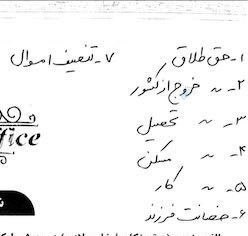 ۱- حق طلاق
۲- ~ خروج از کشور
۳- ~ تحصیل
۴- ~ مسکن
۵- ~ کار
۶- حضانت فرزند
۷- تنصیف اموال
fice